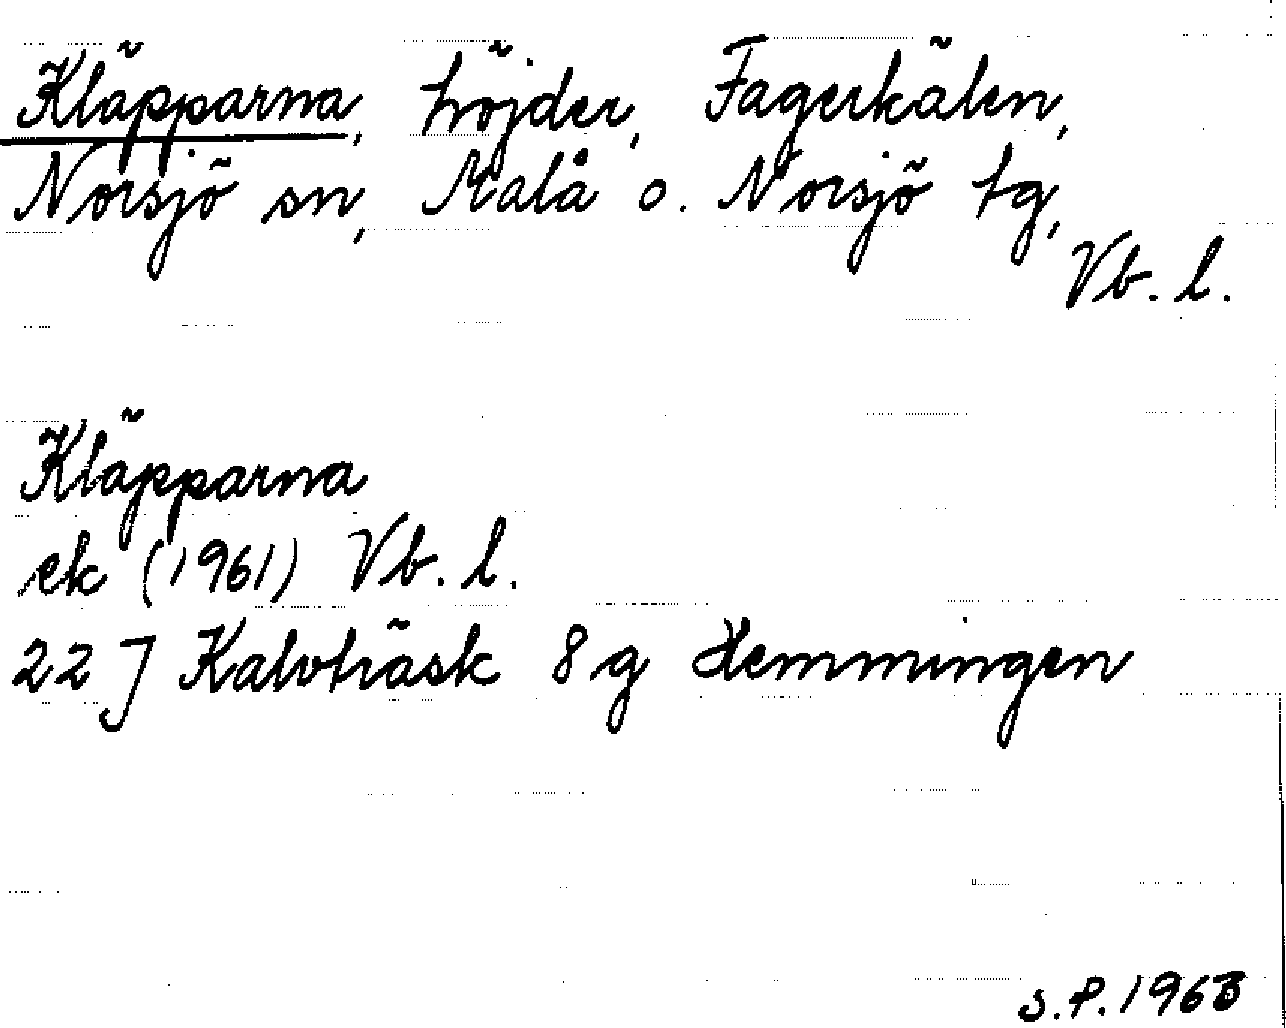 Kläpparna, höjder, Fagerkälen,
Norsjö sn, Malå o. Norsjö tg,
Vb. l.
Kläpparna
ek (1961) Vb. l.
22 J Kalvträsk 8 g Hemmingen
S.P. 1963